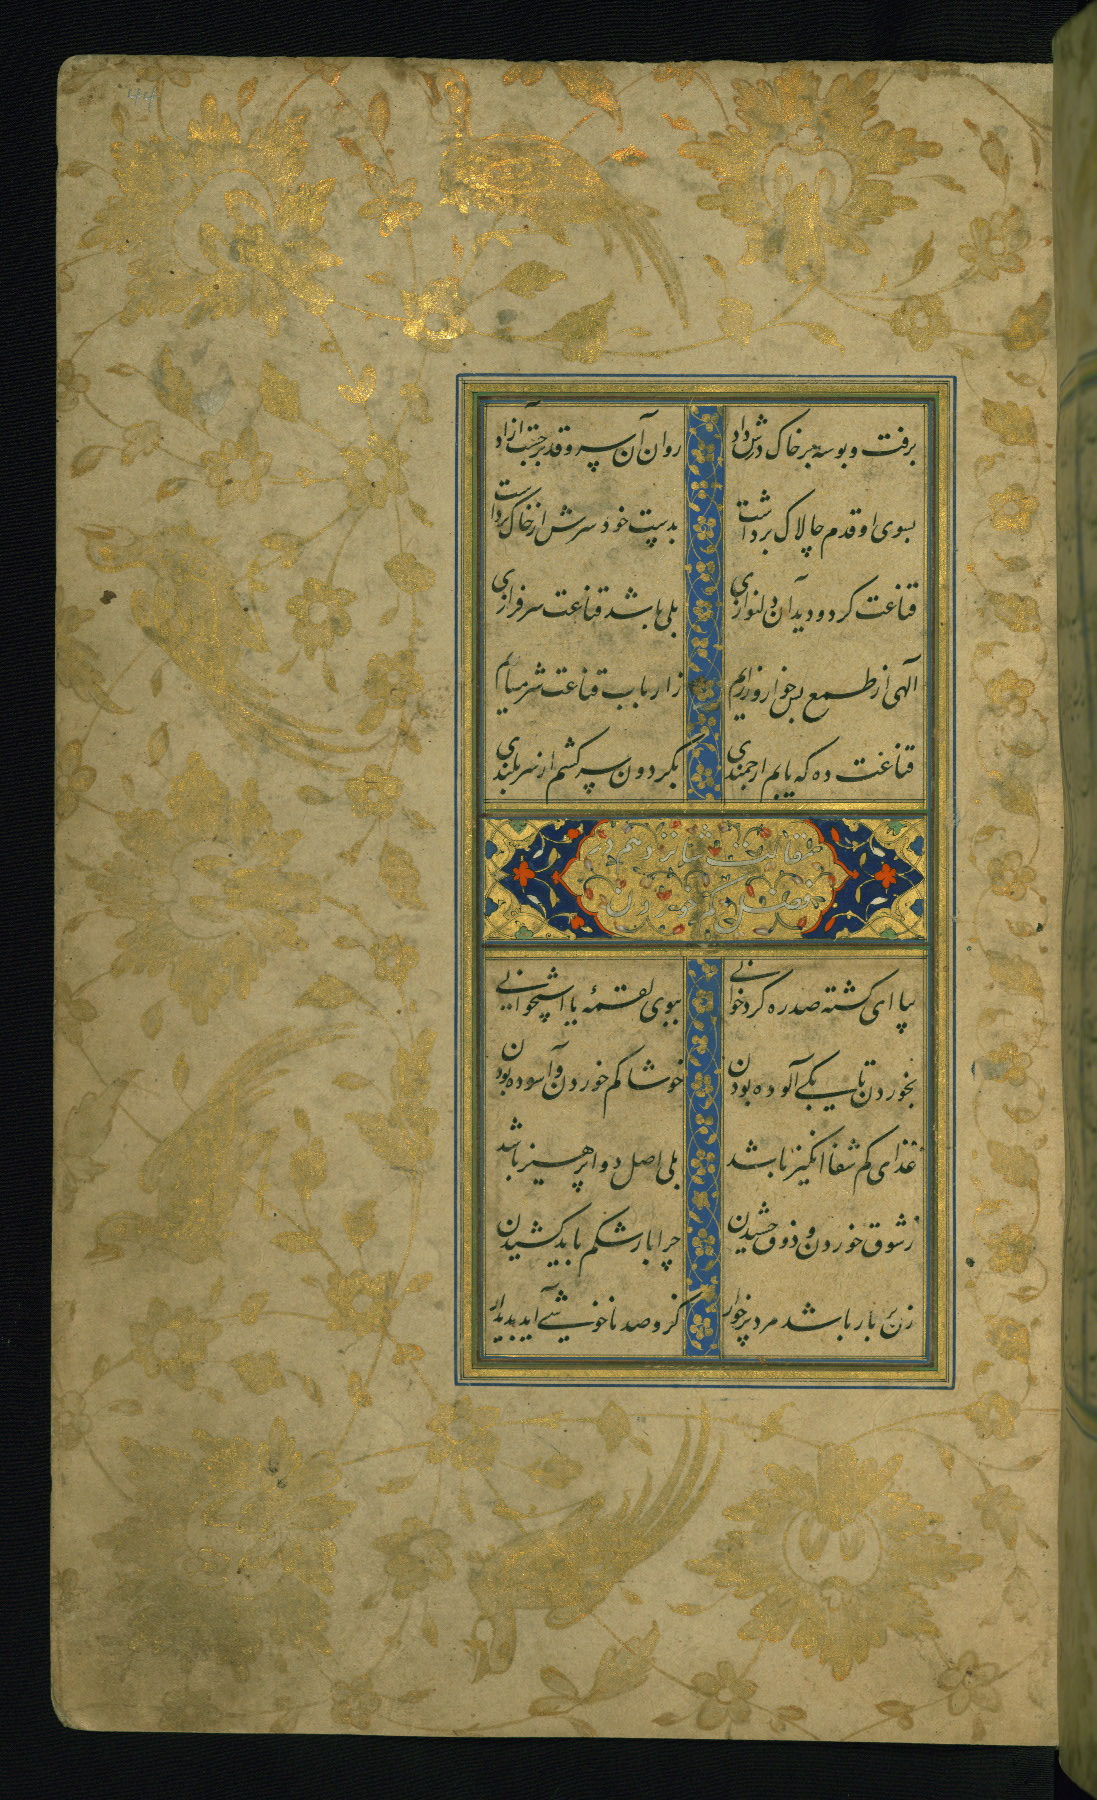 برفت و بوسه بر خاک درش داد روان آن سرو قد برجست آزاد
بسوی او قدم چالاک برداشت بدست خود سرش از خاک برداشت
قناعت کرد و دید آن دلنوازی بلی باشد قناعت سرفرازی
الهی از طمع بس خوار و زاریم ز ارباب قناعت شرمساریم
قناعت ده که یابم ارجمندی بگردون سر کشم از سربلندی
مقالت شانزدهم در
فضل کم خوردن
بیا ای کشته صد ره گرد خوانی ببوی لقمهٔ یا استخوانی
بخوردن تا بکی آلوده بودن خوشا کم خوردن و آسوده بودن
غذای کم شفا انگیز باشد بلی اصل دوا پرهیز باشد
ز شوق خوردن و ذوق چشیدن چرا بار شکم باید کشیدن
زن پر بار باشد مرد پرخوار کزو صد ناخوشی آید پدیدار